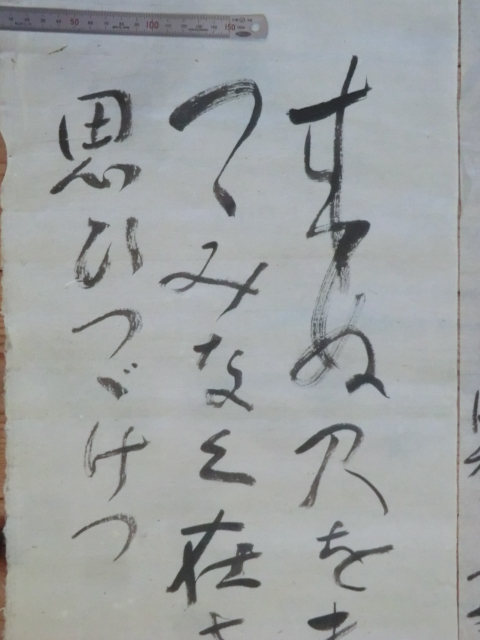 来ぬ人を
つゝみなく在
思ひつゞけつ
50 100 150